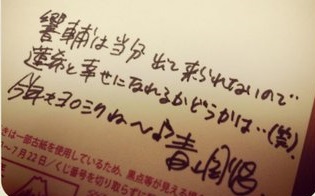 響輔は当分出て来られないので‥
蓮希と幸せになれるかどうかは‥(笑)
今年もヨロシクね〜♪
青山剛昌
きは一部古紙を使用しているため、黒点等が見える
〜7月22日/くじ番号を切り取らずに